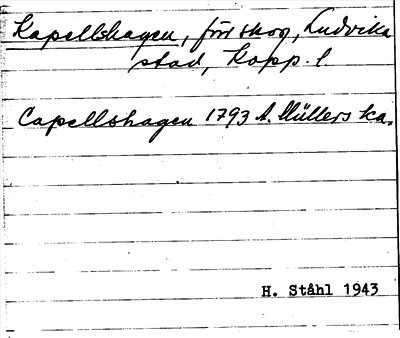 Kapellshagen, förr skog, Ludvika
stad, Kopp. l.
Capellshagen 1793 A. Müllers ka.
H. Ståhl 1943